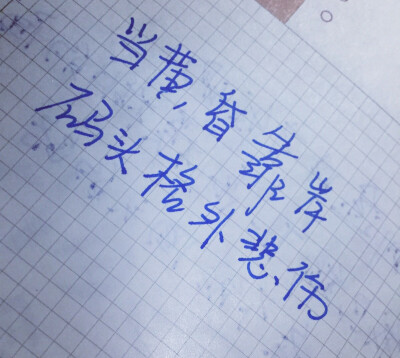 当黄昏靠岸
码头格外悲伤